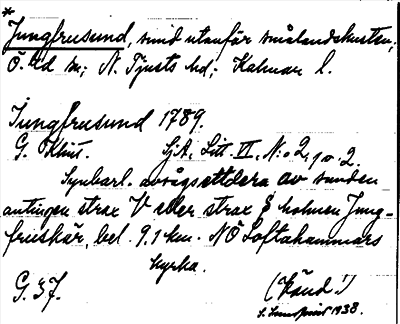 *
Jungfrusund, sund utanför smålandskusten;
Ö. Ed sn; N. Tjusts hd; Kalmar l.
Jungfrusund 1789.
G. Klint. SjA, Litt. VI, N:o 2, 1 o. 2.
Synbarl. avses ettdera av sunden
antingen strax V eller strax S holmen Jung-
fruskär, bel. 9.1 km. NÖ Loftahammars
kyrka.
G. 37. (Känd!)
S. Lundqvist 1938.